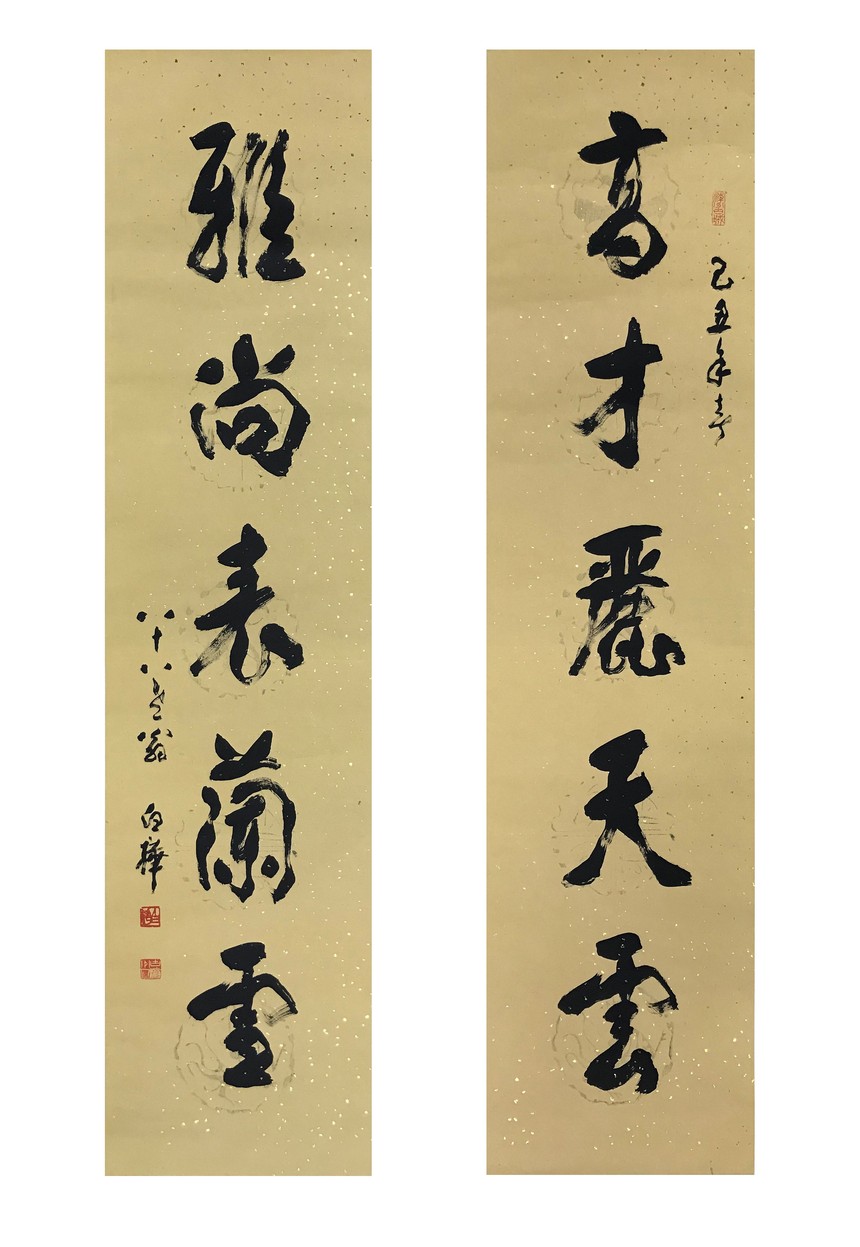 高才麗天雲
己丑年春
雅尚表蘭雪
八十八
翁
白